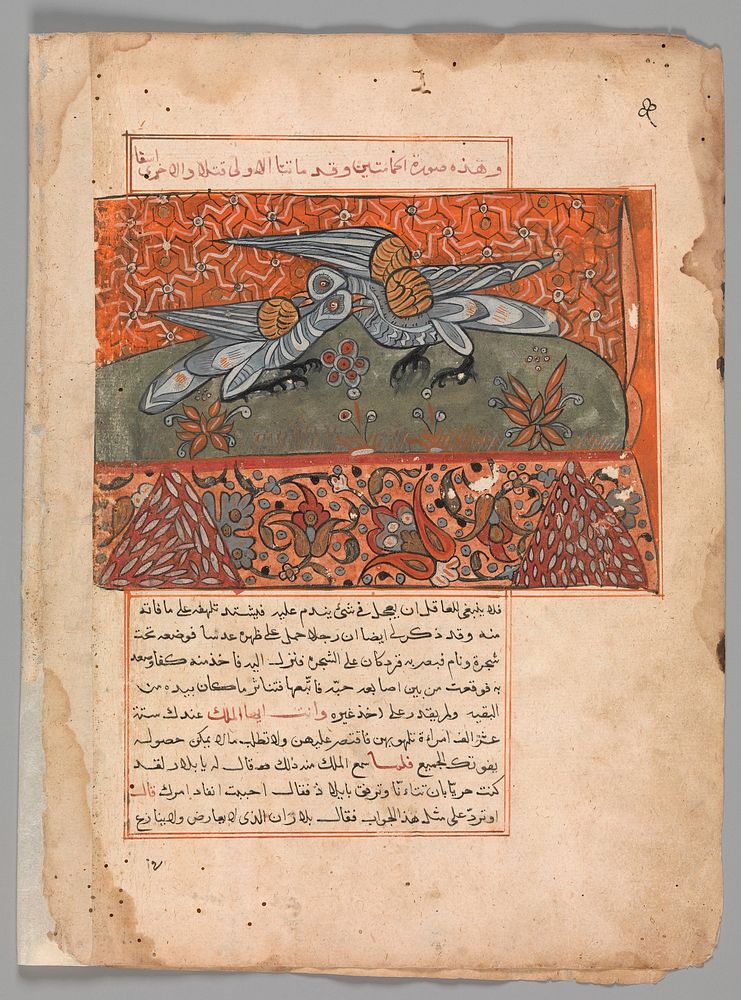 وهذه صورة الحمامتين وقد ماتتا الاولى قتلا والاخرى اسفا
فلا ينبغي للعاقل ان يعجل في شئ يندم عليه فيشتد تلهفه على ما فاته
منه وقد ذكر لي ايضا ان رجلا حمل على ظهره عدسا فوضعه تحت
شجرة ونام فبصر به قرد كان على الشجرة فنزل اليه فاخذ منه كفا وصعد
به فوقعت من بين اصابعه حبة فاتبعها فتناثر ما كان بيده من
البقيه ولم يقدر على اخذ غيره وانت ايها الملك عندك ستة
عشر الف امراءة تلهو بهن فاقتصر عليهن ولا تطلب ما لا يمكن حصوله
يفوتك الجميع فلما سمع الملك منه ذلك قال له يا بلار لقد
كنت حريا بان تتاءنا وترفق يا بيلاذ فقال احببت انفاذ امرك قال
او تردّ على مثل هذا الجواب فقال بلار ان الذى لا يعارض ولا ينازع